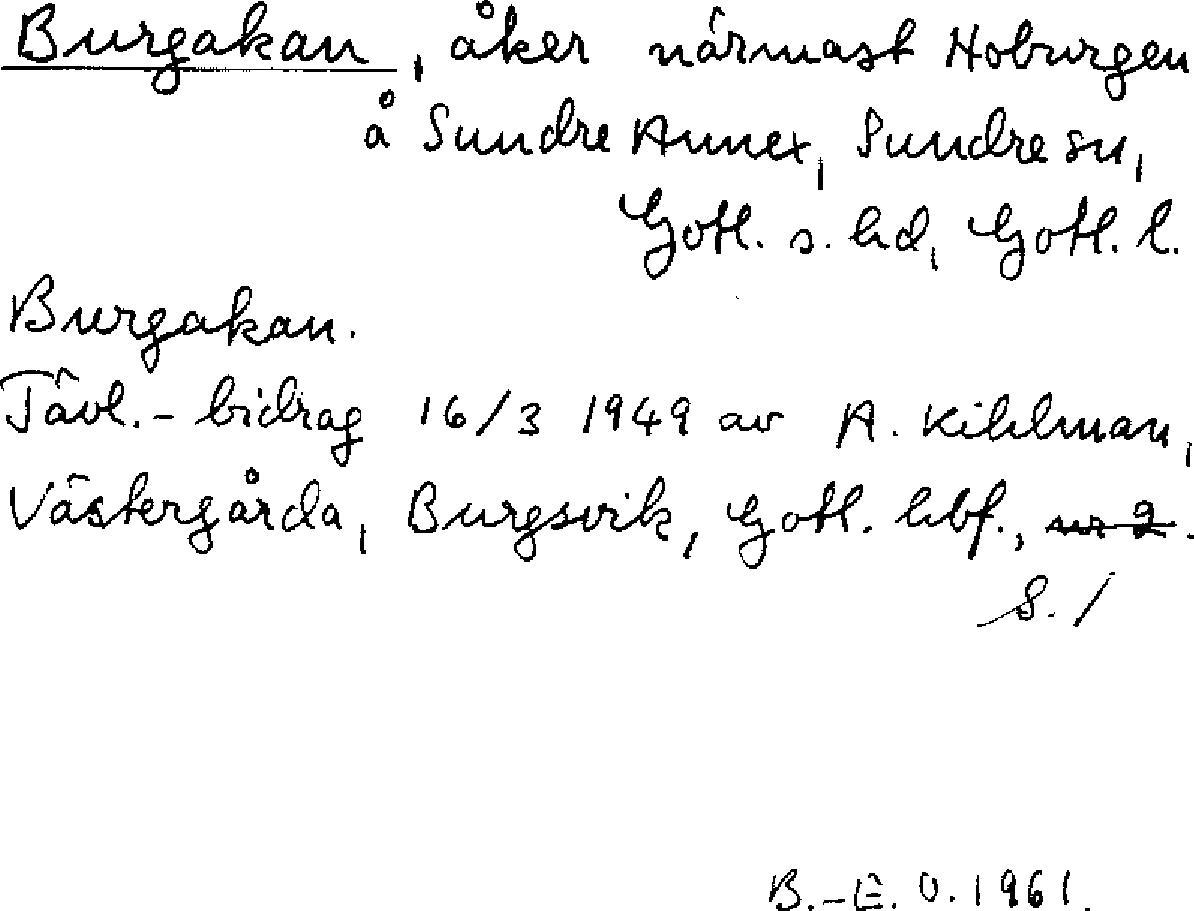 Burgakan, åker närmast Hoburgen
å Sundre Annex, Sundre sn,
Gotl. s. hd, Gotl. l.
Burgakan.
Tävl.-bidrag 16/3 1949 av A. Kihlman,
Västergårda, Burgsvik, Gotl. hbf., nr 2.
S. 1
B.-E. O. 1961.